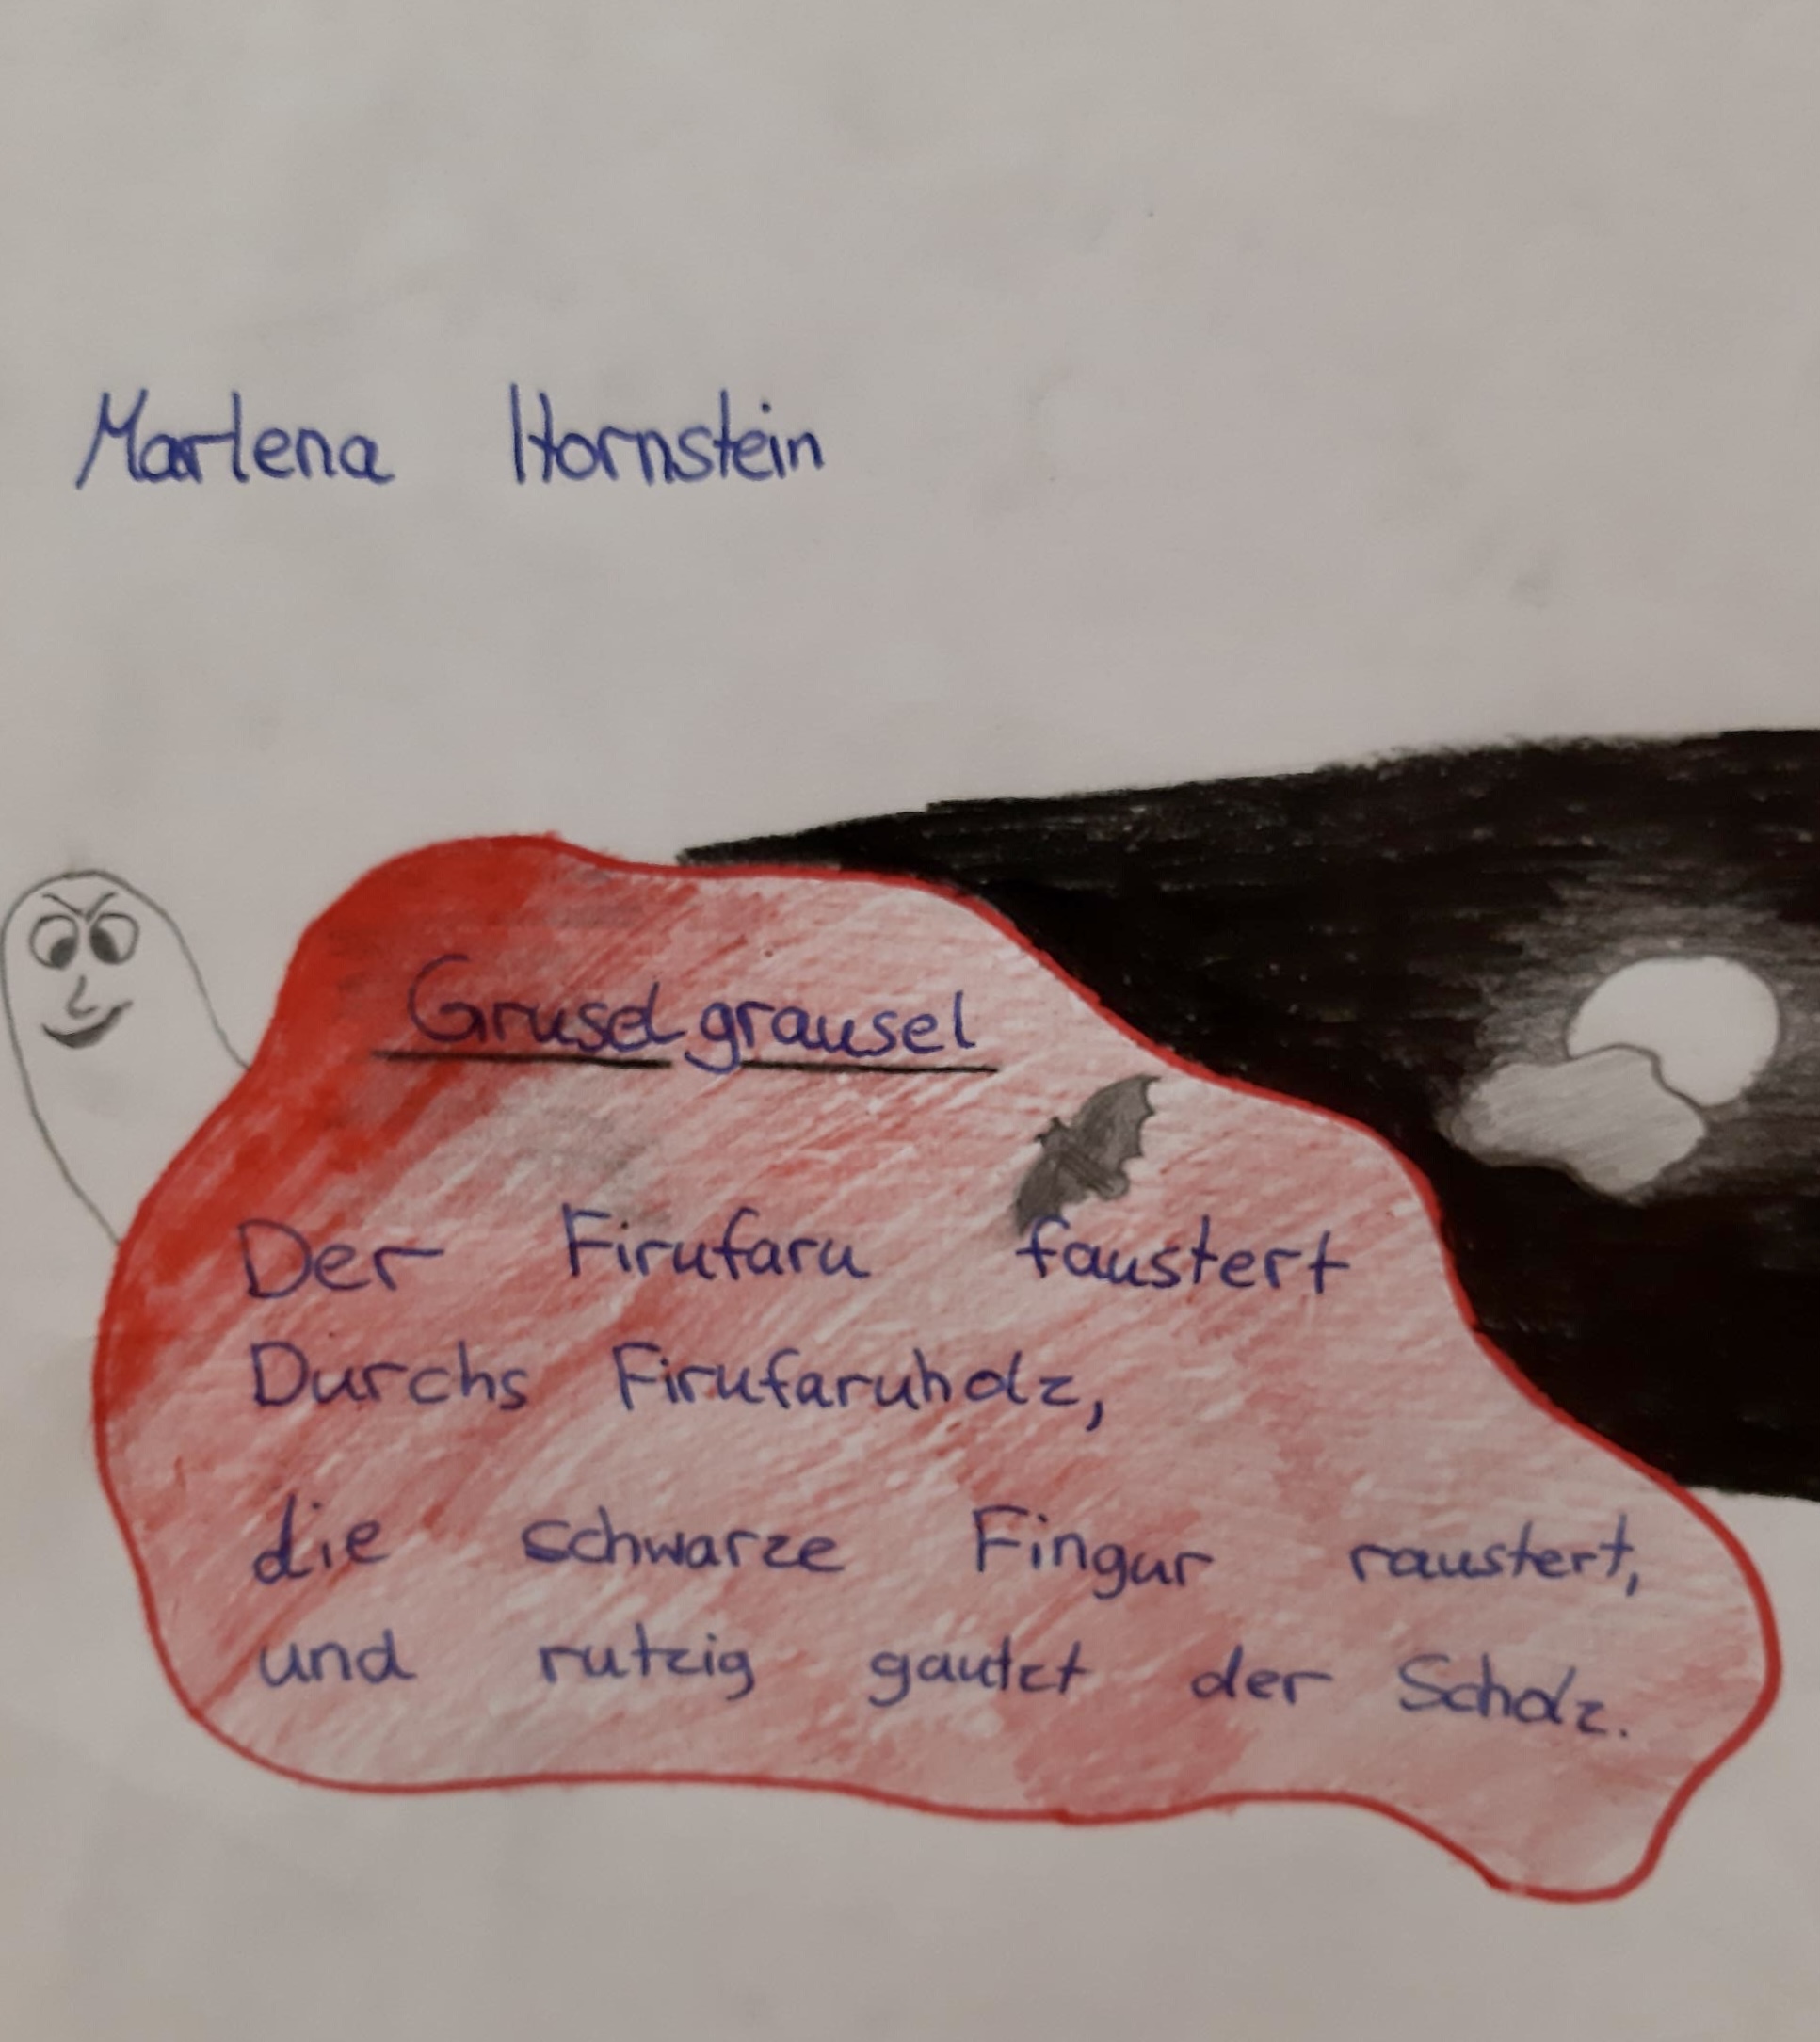 Marlena Hornstein
Gruselgrausel
Der Firufaru faustert
Durchs Firufaruholz,
die schwarze Fingur raustert,
und rutzig gautzt der Scholz.